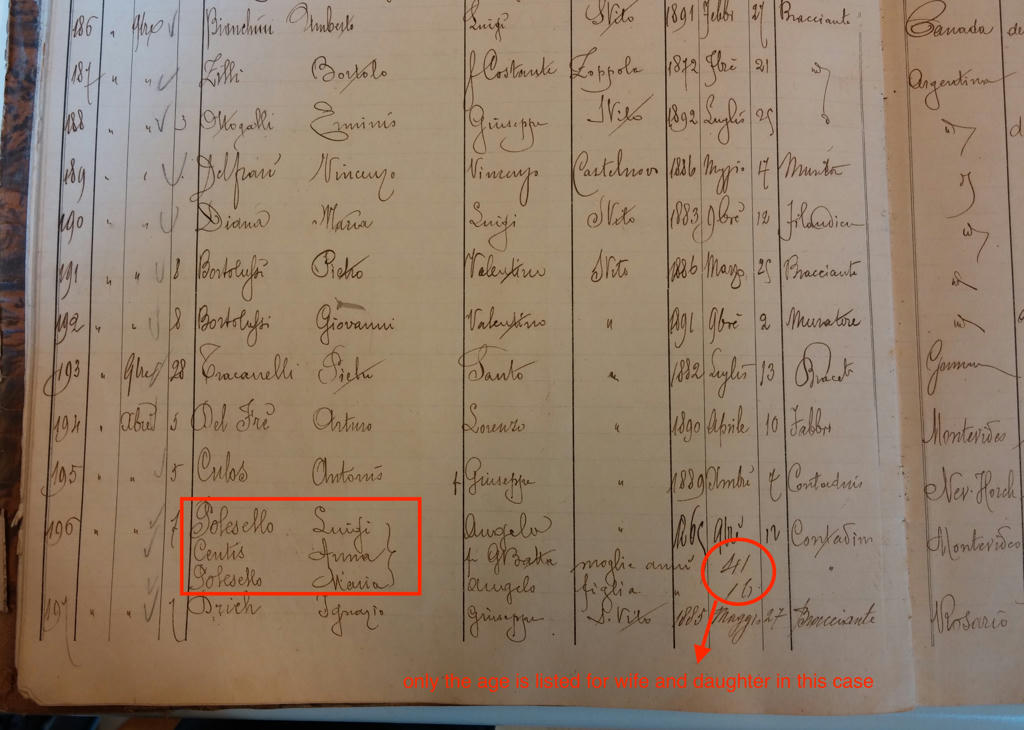 186 " 9bre Bianchini Umberto Luigi S Vito 1891 Febb 27 Bracciante Canada
187 " " Zilli Bortolo f Costante Zoppola 1872 21 " Argentina
188 " " 3 Ottogalli Erminio Giuseppe S Vito 1892 Luglio 25 " "
189 " " Vincenzo Vincenzo Castelnovo 1886 17 "
190 " " Diana Maria Luigi S Vito 1883 9bre 12 Filandiera "
191 " " 8 Bortolussi Pietro Valentino S Vito 1886 Marzo 25 Bracciante "
192 " " 8 Bortolussi Giovanni Valentino " 1891 9bre 2 Muratore "
193 " 9bre 28 Tracanelli Pietro Santo " 1882 Luglio 13
194 " Xbre 5 Del Frè Arturo Lorenzo " 1890 Aprile 10 Fabbro Montevideo
195 " " 5 Culos Antonio f Giuseppe " 1889 7 Contadino
196 " " 7 Polesello Luigi Angelo " 1865 9bre 12 Contadin Montevideo
Centis Anna f G Batta moglie anni 41 "
Polesello Maria Angelo figlia " 16
197 " " 7 Ignazio Giuseppe S. Vito 1885 Maggio 27 Bracciante Rosario
only the age is listed for wife and daughter in this case